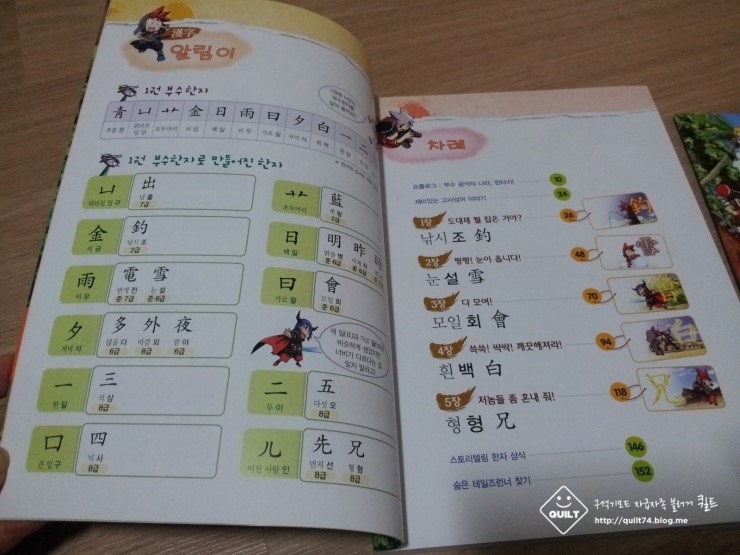 漢字
알림이
1권 부수한자
靑 凵 艹 金 日 雨 曰 夕 白 一 二
푸를 청 위터진 입구 초두머리 쇠 금 해 일 비 우 가로 왈 저녁 석 흰 백 한 일
1권 부수한자로 만들어진 한자
凵
위터진 입구
出
날 출
7급
艹
초두머리
藍
쪽 람
2급
金
쇠 금
釣
낚시 조
2급
日
해 일
明 昨
밝을 명 어제 작
준 6급 준 6급
雨
비 우
電 雪
번개 전 눈 설
준 7급 준 6급
曰
가로 왈
會
모일 회
준 6급
夕
저녁 석
多 外 夜
많을 다 바깥 외 밤 야
6급 8급 6급
해 일(日)과 가로 왈(曰)은
비슷하게 생겼지만
너비가 다르다는 걸
잊지 말라고!
一
한 일
三
석 삼
8급
二
두 이
五
다섯 오
8급
口
큰입 구
四
넉 사
8급
儿
어진 사람 인
先 兄
먼저 선 형 형
8급 8급
차례
프롤로그 : 부수 광석의 나라, 한타지! 10
재미있는 고사성어 이야기 24
1장 도대체 뭘 잡은 거야? 26
낚시 조 釣
釣
2장 펑펑! 눈이 옵니다! 48
눈 설 雪
雪
3장 다 모여! 70
모일 회 會
4장 쓱쓱! 싹싹! 깨끗해져라! 94
흰 백 白
白
5장 저놈들 좀 혼내 줘! 118
형 형 兄
兄
스토리텔링 한자 상식 146
숨은 테일즈런너 찾기 152
QUILT
퀼트
http://quilt74.blog.me